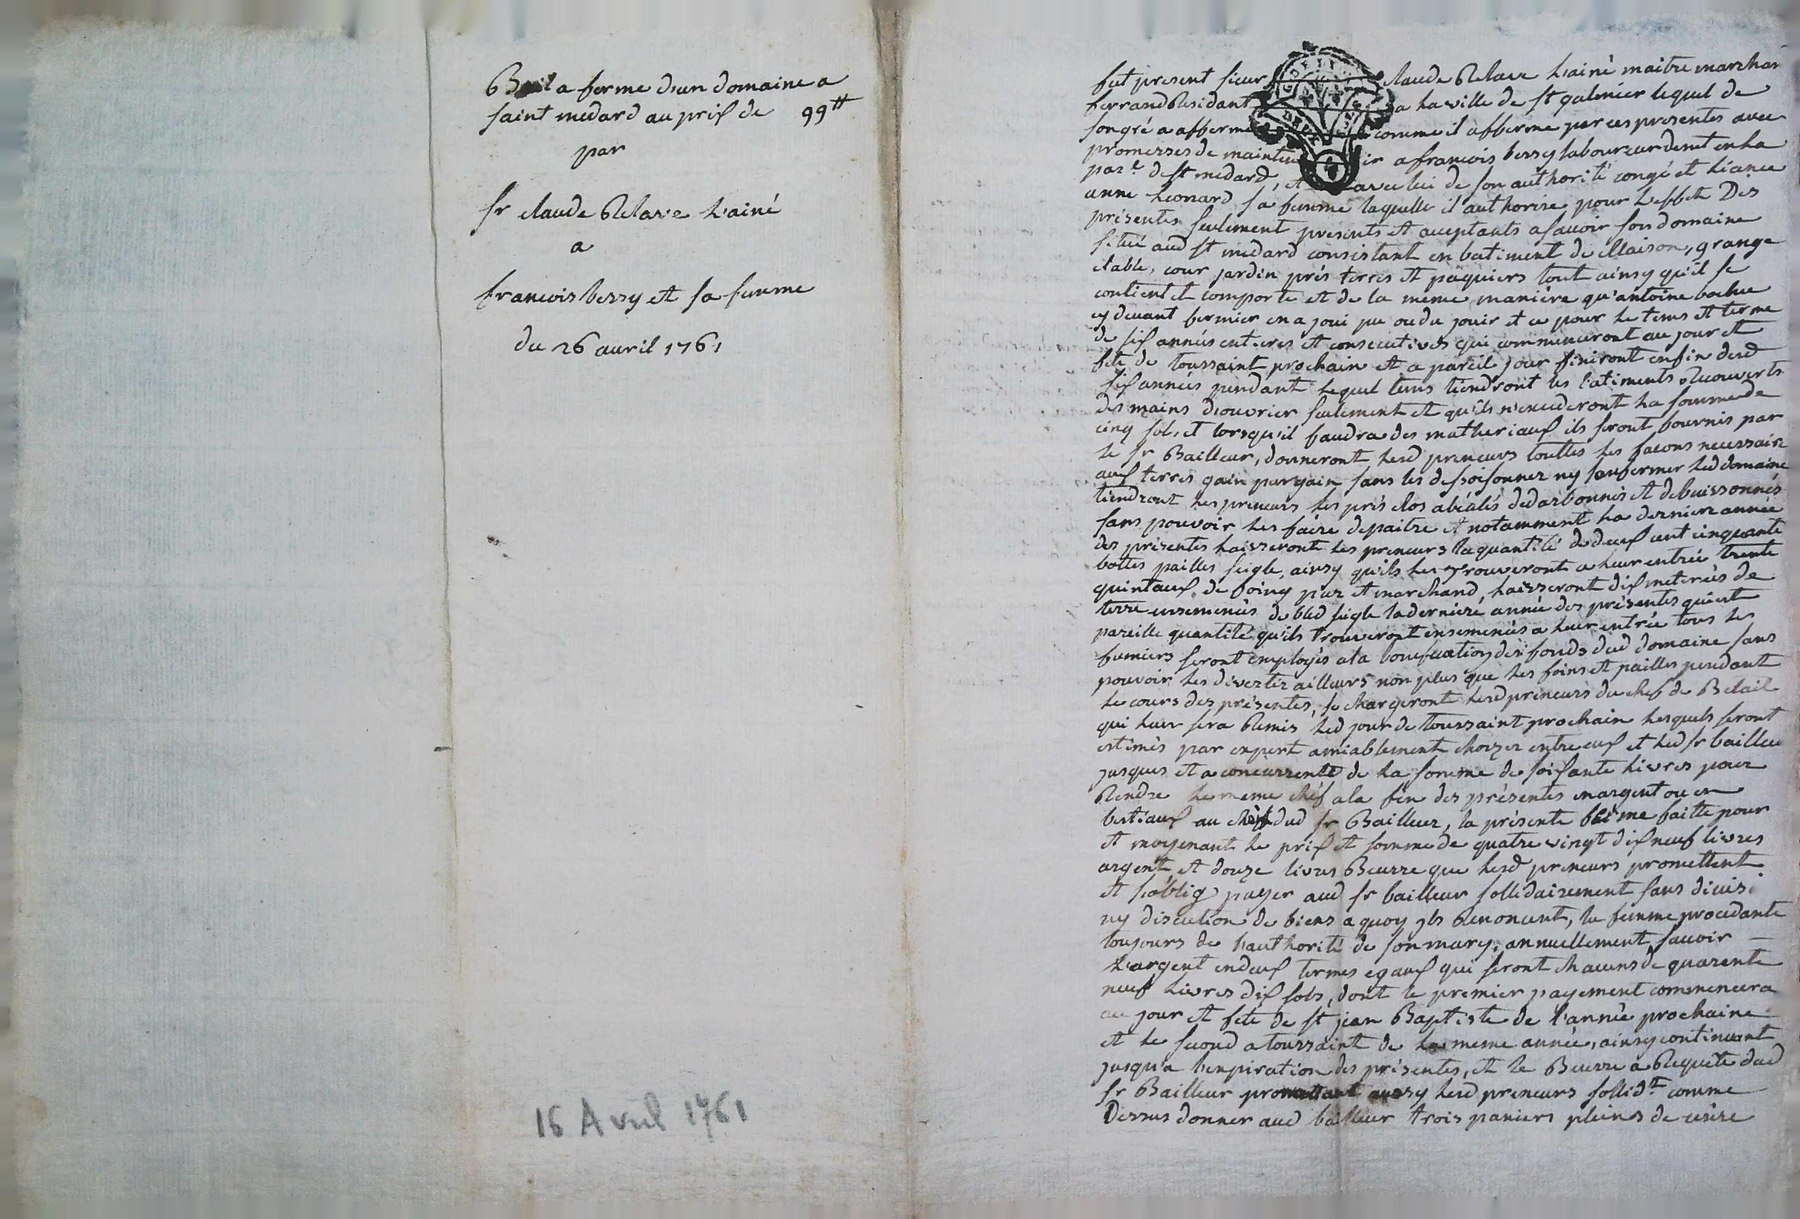 Bail a ferme d'un domaine a
saint medard au prix de 99tt
par
Sr claude Relave L'ainé
a
francois bessy et sa femme
du 26 avril 1761
16 Avril 1761
fut present sieur claude Relave L'ainé maitre marchan
ferrand Residant a La ville de st galmier lequel de
son gré a affermé comme il afferme par ces presentes avec
promesses de mainten ir a francois bessy laboureur dem.t en La
par.e de st medard, et avec lui de son authorité congé et Licance
anne Leonard sa femme laquelle il authorise pour L'effet Des
présentes seulement presents et aceptants asavoir son domaine
situé aud st medard consistant en batiment de Maison, grange
etable, cour jardin prés terres et paquiers tout ainsy qu'il se
contient et comporte et de la meme maniére qu'antoine
cy devant fermier en a joui pu ou du jouir et ce pour Le tems et terme
de six années entieres et consecutives qui commenceront au jour et
fete de toussaint prochain et a pareil jour finiront en fin desd
six années pendant Lequel tems tiendront les batiments Recouverts
des mains d'ouvrier seulement et qu'ils n'excederont La somme de
cinq sols, et lorsqu'il faudra des matheriaux ils seront fournis par
le sr Bailleur, donneront Lesd preneurs touttes Les facons necessaire
aux terres gain pargain sans les dessoisonner ny surfermer Led domaine
tiendront Les preneurs Les prés clos abéalés dedarbonnés et debuissonnés
sans pouvoir Les faire depaitre et notamment La derniere année
des présentes Laisseront Les preneurs la quantité de deux cent cinquante
bottes pailles seigle, ainsy qu'ils Les trouveront a Leur entrée trente
quintaux de foing pur et marchand, Laisseront dix meterées de
terre ensemencés de bled seigle la derniere année des présentes qui est
pareille quantité qu'ils trouveront ensemencés a Leur entrée tous Les
fumiers seront employés a la bonification des fonds dud domaine sans
pouvoir Les divertir ailleurs non plus que Les foins et pailles pendant
Le cours des présentes, se chargeront Lesd preneurs du chef de Betail
qui Leur sera Remis Led jour de toussaint prochain Lesquels seront
estimés par expert amiablement choizer entre eux et Led sr bailleu
jusques et a concurrente de La somme de soixante Livres pour
Rendre Le meme chef a la fin des présentes en argent ou en
bestiaux au dud sr Bailleur, la présente ferme faitte pour
et moyenant Le prix et somme de quatre vingt dix neuf livres
argent et douze livres Beurre que Lesd preneurs promettent
et s'oblig payer aud sr bailleur sollidairement sans divis
ny discution de biens a quoy ils Renoncent, la femme procedante
toujours de l'authorité de son mary, annuellement savoir
L'argent en deux termes egaux qui seront chacuns de quarente
neuf Livres dix sols, dont le premier payement commencera
au jour et fete de st jean Baptiste de l'année prochaine
et Le second a toussaint de La meme année, ainsy continuant
jusqu'a l'expiration des présentes, et le Beurre a Requete dud
sr Bailleur promettant aussy Lesd preneurs sollid.t comme
Dessus donner aud bailleur trois paniers pleins de cerise